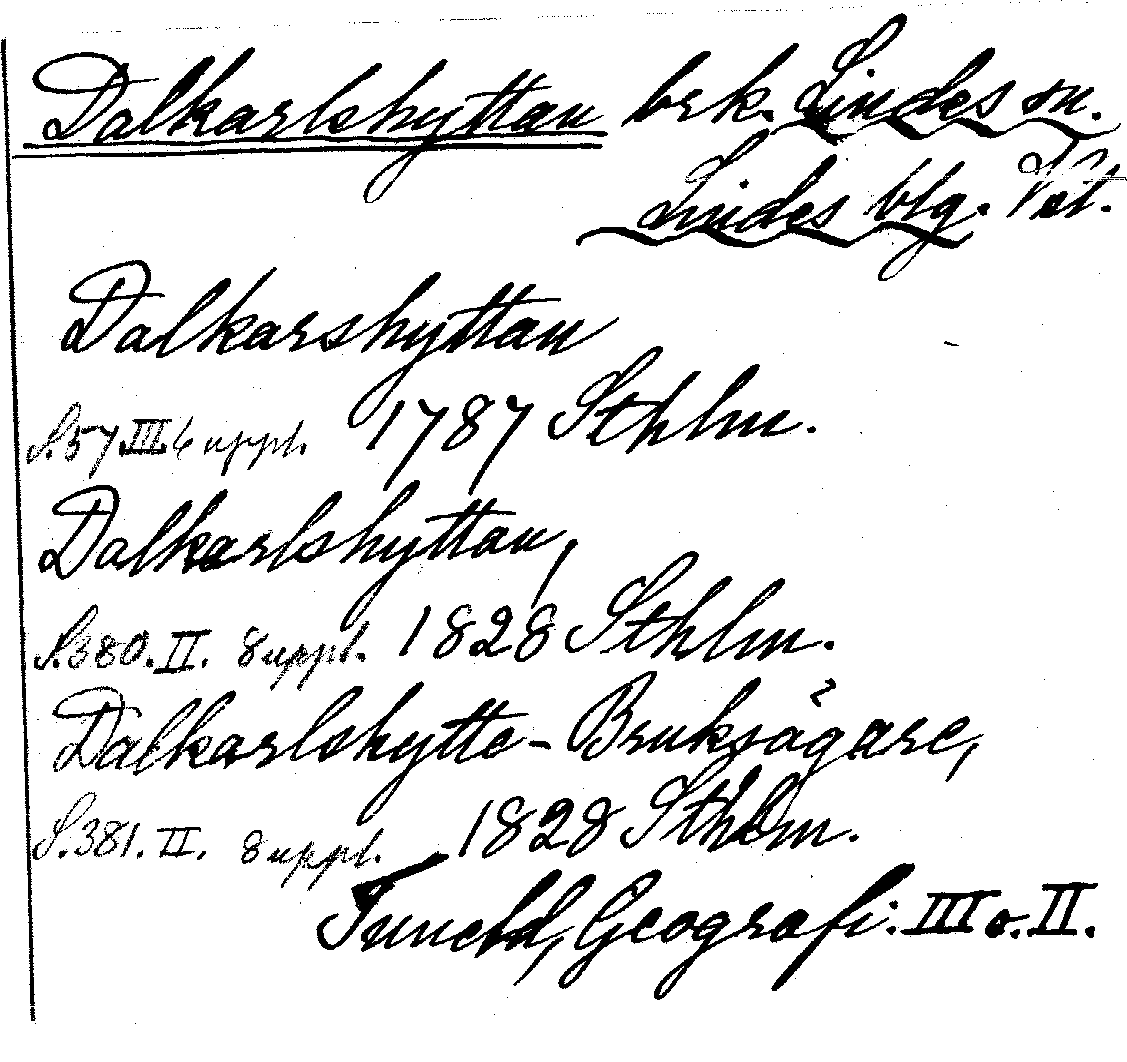 Dalkarlshyttan brk. Lindes sn.
Lindes blg. Vst.
Dalkarshyttan
S.57 III.6 uppl. 1787 Sthlm.
Dalkarlshyttan,
S.380. II. 8 uppl. 1828 Sthlm.
Dalkarlshytte-Bruksägare,
S.381. II. 8 uppl. 1828 Sthlm.
Tuneld, Geografi. III o. II.